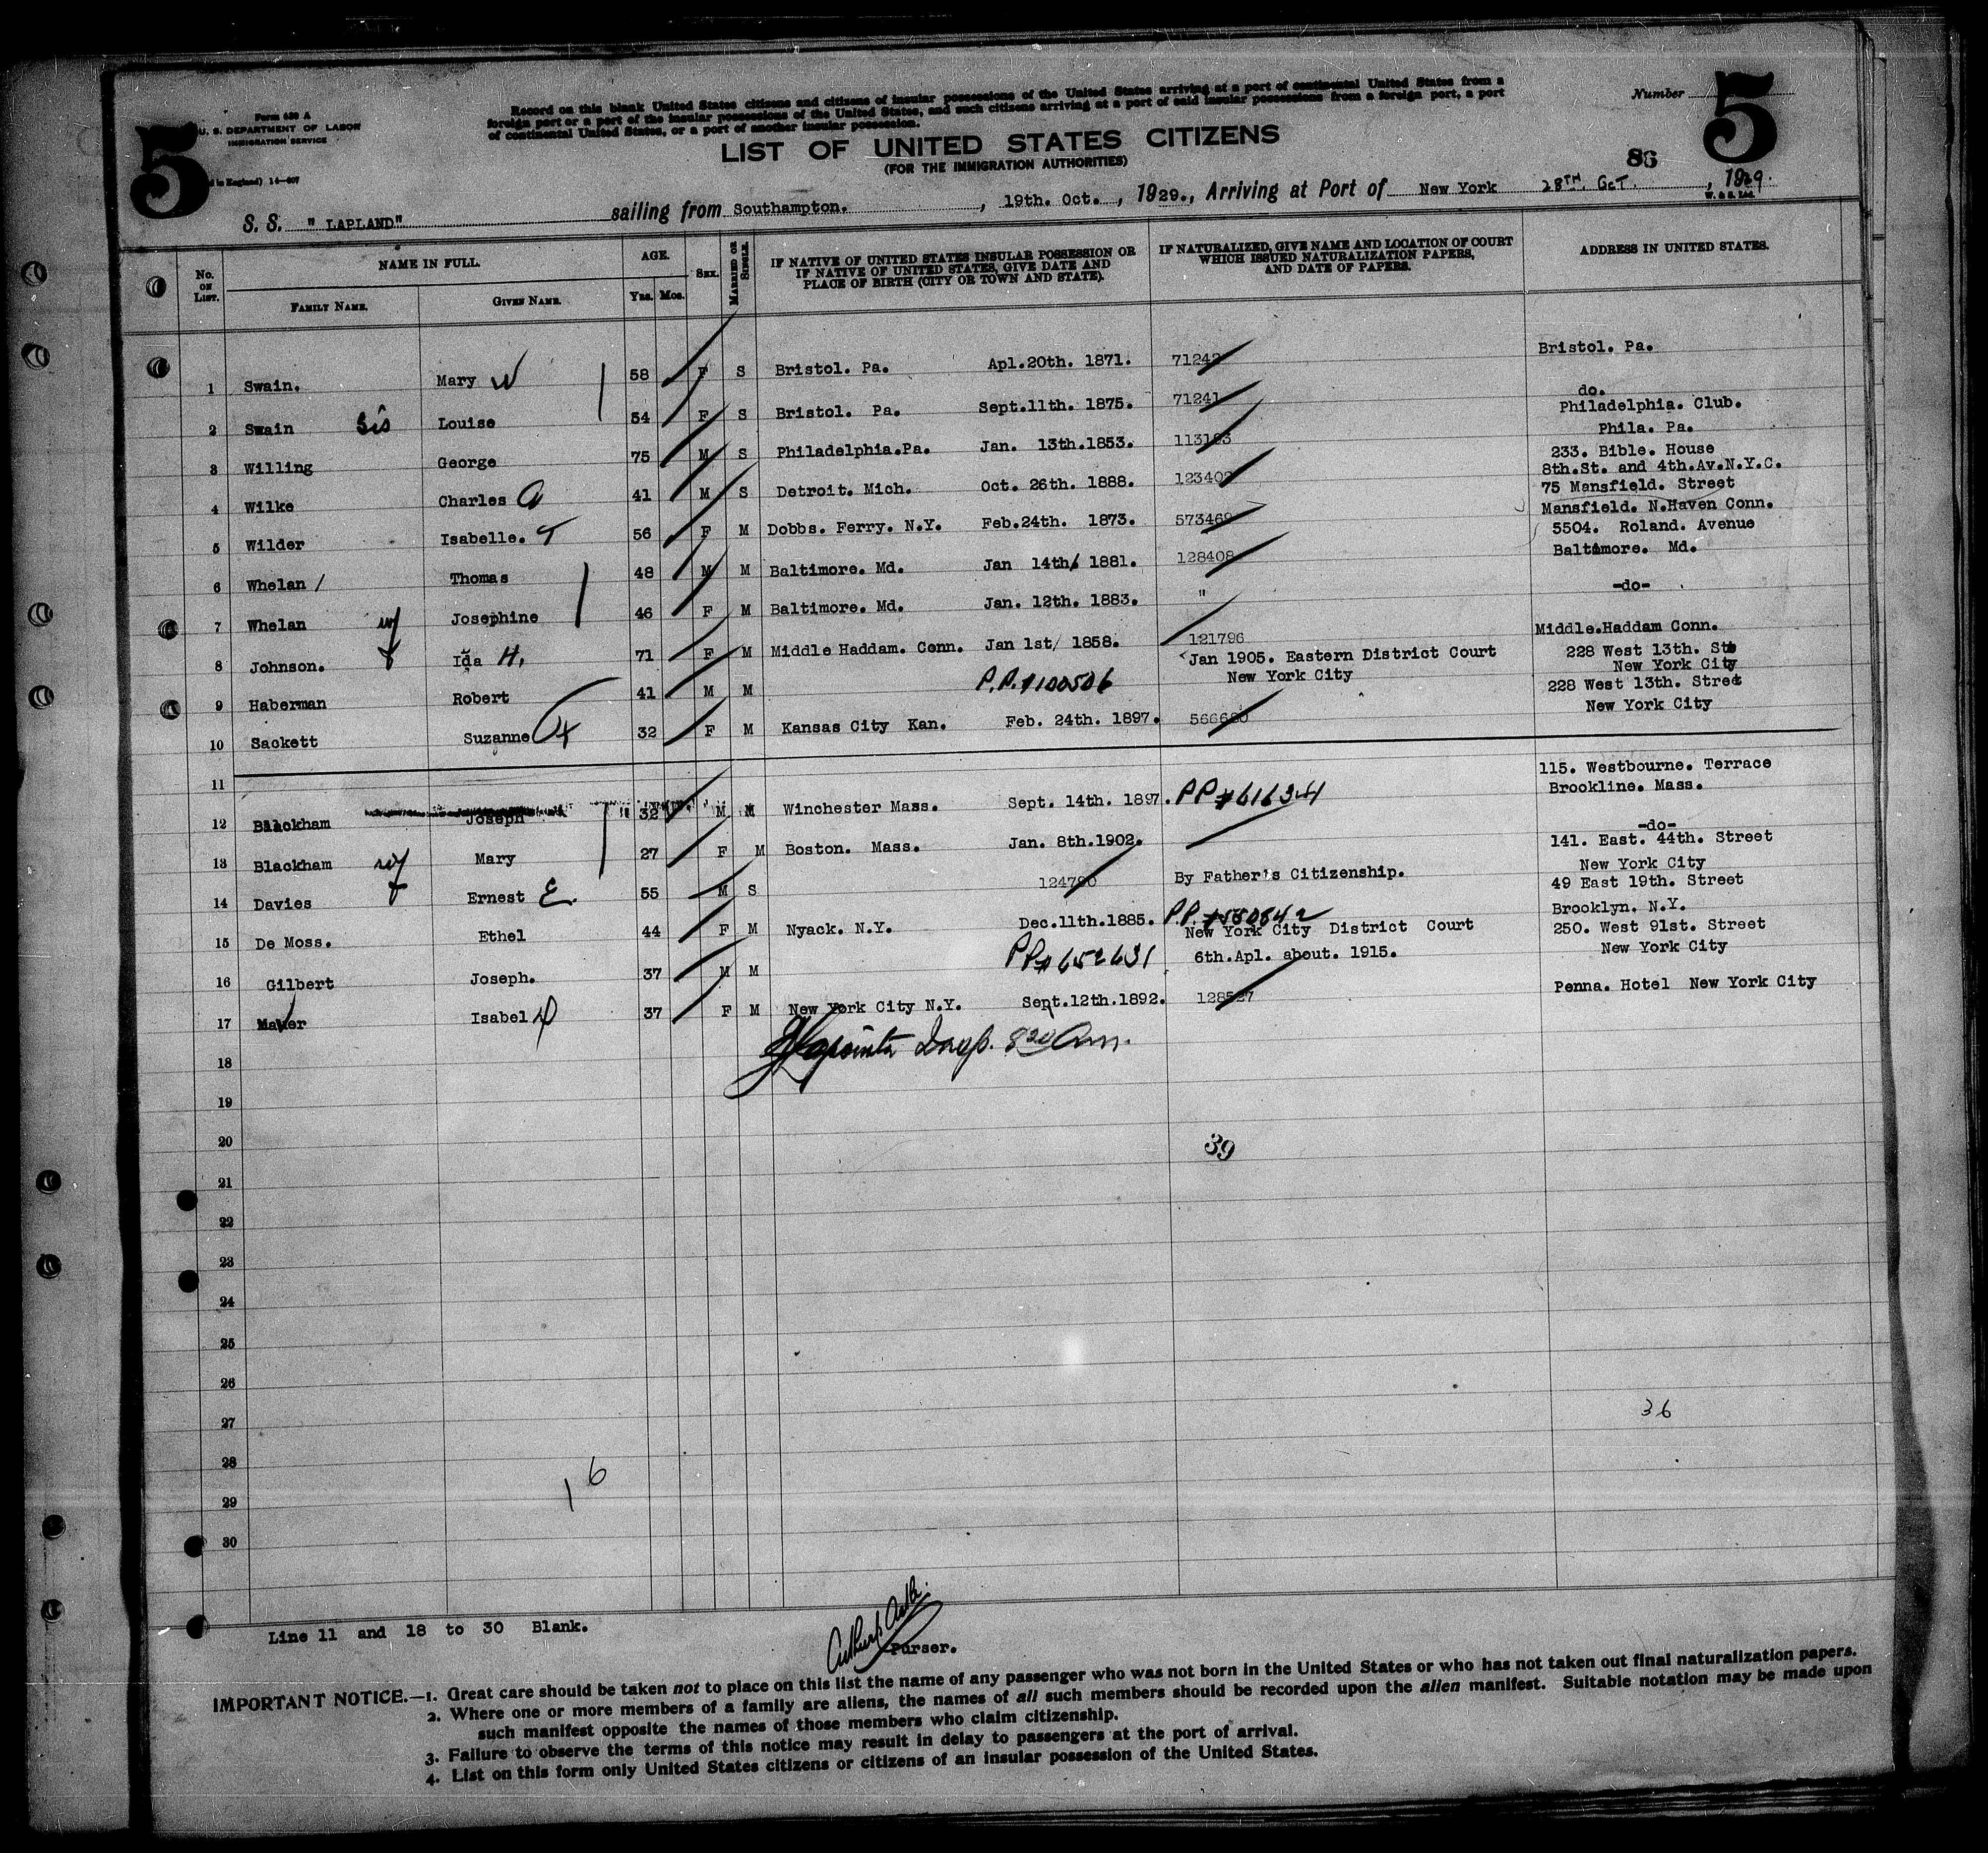 5
Form 630 A
U. S. DEPARTMENT OF LABOR
IMMIGRATION SERVICE
in England) 14—607
Record on this blank United States citizens and citizens of insular possessions of the United States arriving at a port of continental United States from a
foreign port or a part of the insular possessions of the United States, and such citizens arriving at a port of said insular possessions from a foreign port, a port
of continental United States, or a part of another insular possession.
Number 5
LIST OF UNITED STATES CITIZENS
(FOR THE IMMIGRATION AUTHORITIES)
86
S. S. "LAPLAND" sailing from Southampton. , 19th. Oct. , 1929., Arriving at Port of New York 28TH. OCT. , 1929.
W. & S. Ltd.
No. ON LIST. NAME IN FULL. AGE. SEX. MARRIED OR SINGLE. IF NATIVE OF UNITED STATES INSULAR POSSESSION OR IF NATIVE OF UNITED STATES, GIVE DATE AND PLACE OF BIRTH (CITY OR TOWN AND STATE). IF NATURALIZED, GIVE NAME AND LOCATION OF COURT WHICH ISSUED NATURALIZATION PAPERS, AND DATE OF PAPERS. ADDRESS IN UNITED STATES.
FAMILY NAME. GIVEN NAME. Yrs. Mos.
1 Swain. Mary W 58 F S Bristol. Pa. Apl.20th. 1871. 71242 Bristol. Pa.
2 Swain Sis Louise 54 F S Bristol. Pa. Sept.11th. 1875. 71241 do.
3 Willing George 75 M S Philadelphia.Pa. Jan. 13th.1853. 113193 Philadelphia. Club.
Phila. Pa.
4 Wilke Charles A 41 M S Detroit. Mich. Oct. 26th. 1888. 123402 233. Bible. House
8th.St. and 4th.Av.N.Y.C.
5 Wilder Isabelle. T 56 F M Dobbs. Ferry. N.Y. Feb.24th. 1873. 573469 75 Mansfield. Street
Mansfield. N.Haven Conn.
6 Whelan / Thomas 48 M M Baltimore. Md. Jan 14th/ 1881. 128408 5504. Roland. Avenue
Baltimore. Md.
7 Whelan wf Josephine 46 F M Baltimore. Md. Jan. 12th. 1883. " -do-
8 Johnson. Ida H. 71 F M Middle Haddam. Conn. Jan 1st/ 1858. 121796 Middle.Haddam Conn.
9 Haberman Robert 41 M M P.P.#100506 Jan 1905. Eastern District Court
New York City
228 West 13th. Ste
New York City
10 Sackett Suzanne 32 F M Kansas City Kan. Feb. 24th. 1897. 566680 228 West 13th. Street
New York City
11
12 Blackham Joseph 32 M M Winchester Mass. Sept. 14th. 1897. PP#61634 115. Westbourne. Terrace
Brookline. Mass.
13 Blackham wf Mary 27 F M Boston. Mass. Jan. 8th.1902. -do-
14 Davies Ernest E. 55 M S 124790 By Father's Citizenship. 141. East. 44th. Street
New York City
15 De Moss. Ethel 44 F M Nyack. N.Y. Dec.11th.1885. P.P.#580842 49 East 19th. Street
Brooklyn. N.Y.
16 Gilbert Joseph. 37 M M PP#652631 New York City District Court
6th.Apl. about. 1915.
250. West 91st. Street
New York City
17 Isabel D 37 F M New York City N.Y. Sept.12th.1892. 128527 Penna. Hotel New York City
Insp. 8 20 Am.
18
19
20
39
21
22
23
24
25
26
27
36
28
16
29
30
Line 11 and 18 to 30 Blank.
Purser.
IMPORTANT NOTICE.—1. Great care should be taken not to place on this list the name of any passenger who was not born in the United States or who has not taken out final naturalization papers.
2. Where one or more members of a family are aliens, the names of all such members should be recorded upon the alien manifest. Suitable notation may be made upon
such manifest opposite the names of those members who claim citizenship.
3. Failure to observe the terms of this notice may result in delay to passengers at the port of arrival.
4. List on this form only United States citizens or citizens of an insular possession of the United States.